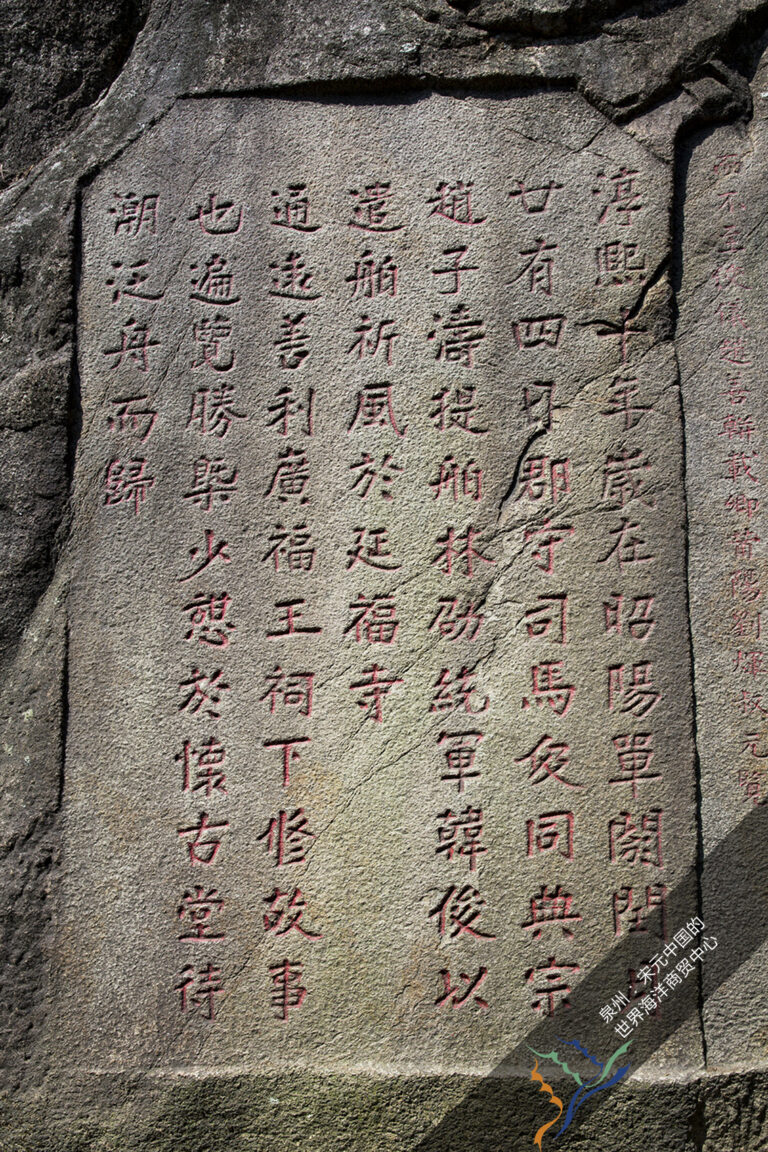 而不至浚儀趙善載卿莆陽劉叔元
淳熙十年歲在昭陽單閼閏月
廿有四日郡守司馬伋同典宗
趙子濤提舶林劭統軍韓俊以
遣舶祈風於延福寺
通遠善利廣福王祠下修故事
也遍覽勝槩少憩於懷古堂待
潮泛舟而歸
泉州：宋元中国的
世界海洋商贸中心